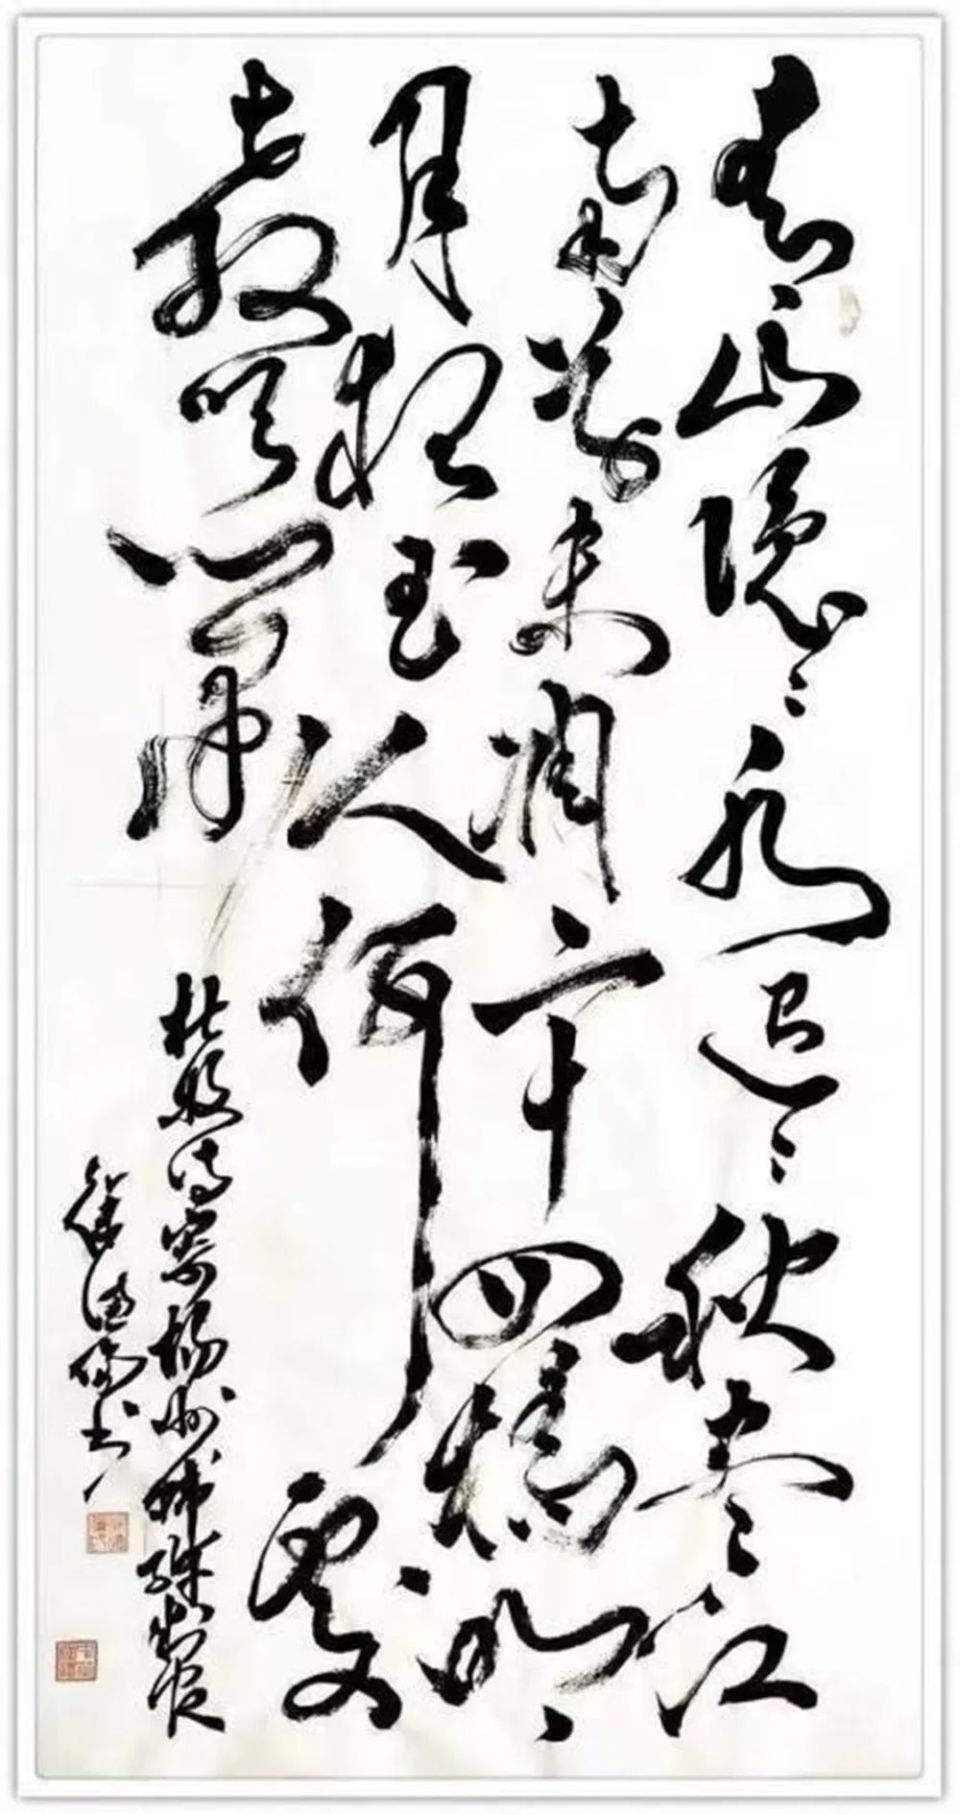 青山隐〻水迢〻秋尽江
南草未凋二十四桥明
月夜玉人何处
教吹箫
杜牧诗寄扬州韩绰判官
德伦书